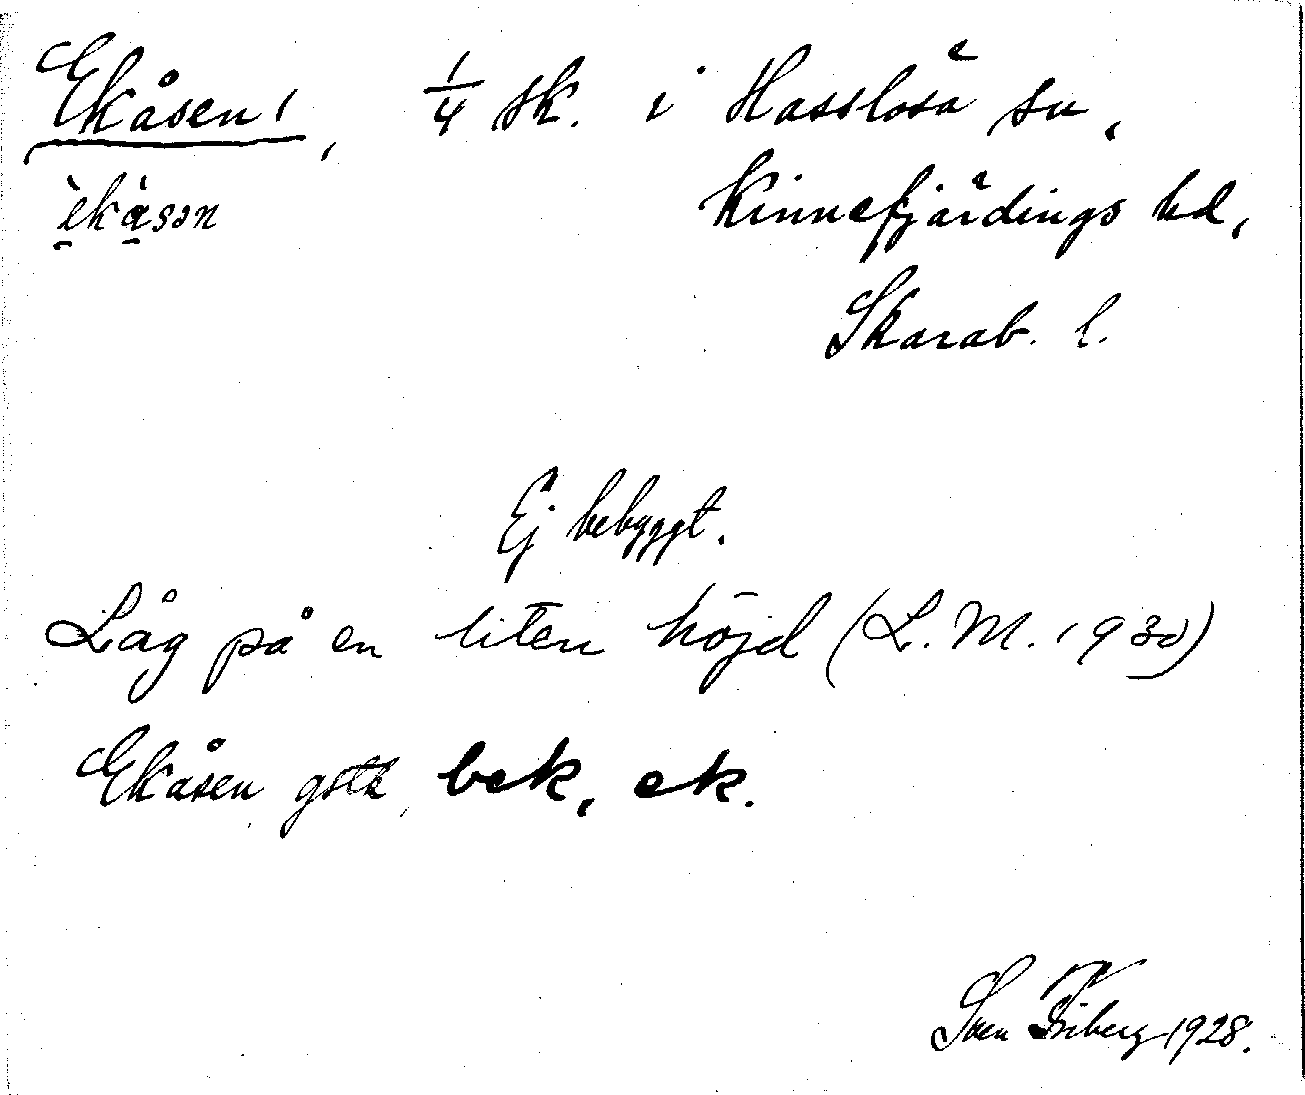 Ekåsen, 1/4 sk. i Hasslösa sn,
èkàsən Kinnefjärdings hd,
Skarab. l.
Ej bebyggt.
Låg på en liten höjd (L.M. 1930)
Ekåsen gstk, bek, ek.
Sven Friberg 1928.